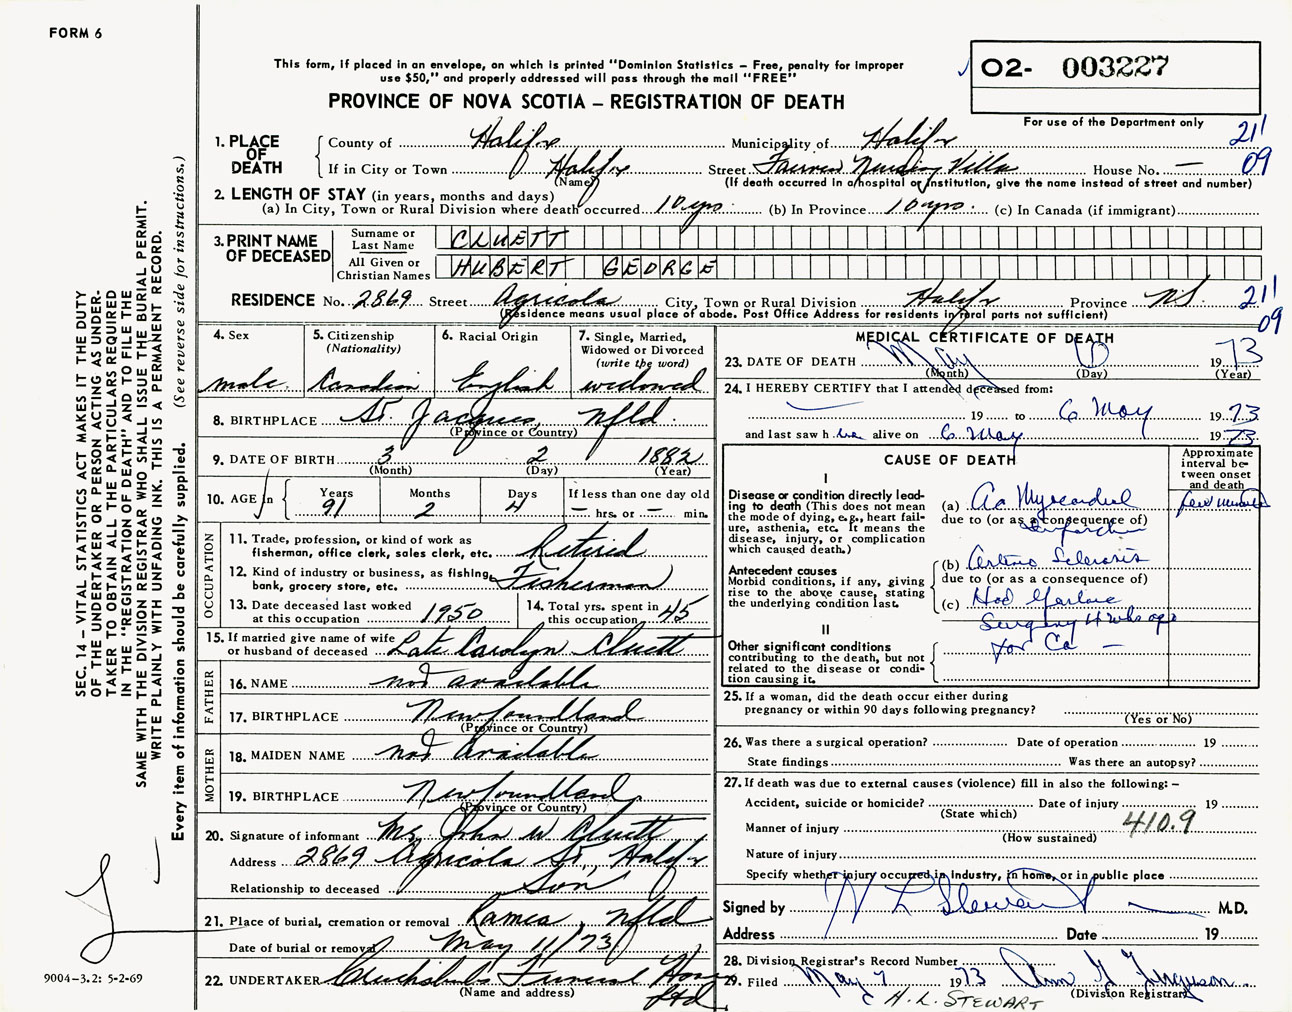 FORM 6
This form, if placed in an envelope, on which is printed "Dominion Statistics – Free, penalty for improper
use $50," and properly addressed will pass through the mail "FREE"
O2- 003227
PROVINCE OF NOVA SCOTIA – REGISTRATION OF DEATH
For use of the Department only
21'
09
1. PLACE OF DEATH
County of Halifx Municipality of Halifx
If in City or Town Halifx Street Nursing Villa House No. —
(Name) (If death occurred in a hospital or institution, give the name instead of street and number)
2. LENGTH OF STAY (in years, months and days)
(a) In City, Town or Rural Division where death occurred 10 yrs. (b) In Province 10 yrs. (c) In Canada (if immigrant)
3. PRINT NAME OF DECEASED
Surname or Last Name CLUETT
All Given or Christian Names HUBERT GEORGE
RESIDENCE No. 2869 Street Agricola City, Town or Rural Division Halifx Province N.S.
(Residence means usual place of abode. Post Office Address for residents in rural parts not sufficient)
21'
09
4. Sex
male
5. Citizenship (Nationality)
Canadian
6. Racial Origin
English
7. Single, Married, Widowed or Divorced (write the word)
widowed
8. BIRTHPLACE St. Jacques, Nfld.
(Province or Country)
9. DATE OF BIRTH 3 2 1882
(Month) (Day) (Year)
10. AGE in
Years 91
Months 2
Days 4
If less than one day old
— hrs. or — min.
OCCUPATION
11. Trade, profession, or kind of work as fisherman, office clerk, sales clerk, etc. Retired
12. Kind of industry or business, as fishing, bank, grocery store, etc. Fisherman
13. Date deceased last worked at this occupation 1950
14. Total yrs. spent in this occupation 45
15. If married give name of wife or husband of deceased Late Carolyn Cluett
FATHER
16. NAME not available
17. BIRTHPLACE Newfoundland
(Province or Country)
MOTHER
18. MAIDEN NAME not available
19. BIRTHPLACE Newfoundland
(Province or Country)
20. Signature of informant Mr. John W Cluett
Address 2869 Agricola St., Halifx
Relationship to deceased Son
21. Place of burial, cremation or removal Ramea, Nfld
Date of burial or removal May 11/73
22. UNDERTAKER Cruikshank's Funeral Home Ltd
(Name and address)
MEDICAL CERTIFICATE OF DEATH
23. DATE OF DEATH May 6 1973
(Month) (Day) (Year)
24. I HEREBY CERTIFY that I attended deceased from:
19 to 6 May 1973
and last saw h im alive on 6 May 1973
CAUSE OF DEATH
Approximate interval between onset and death
I
Disease or condition directly leading to death (This does not mean the mode of dying, e.g., heart failure, asthenia, etc. It means the disease, injury, or complication which caused death.)
(a) Ac Myocardial Infarction
few minutes
due to (or as a consequence of)
Antecedent causes
Morbid conditions, if any, giving rise to the above cause, stating the underlying condition last.
(b) Arterio Sclerosis
due to (or as a consequence of)
(c) Had
Surgery 4 wks ago
for Ca —
II
Other significant conditions
contributing to the death, but not related to the disease or condition causing it.
25. If a woman, did the death occur either during
pregnancy or within 90 days following pregnancy?
(Yes or No)
26. Was there a surgical operation? Date of operation 19
State findings Was there an autopsy?
27. If death was due to external causes (violence) fill in also the following: –
Accident, suicide or homicide? Date of injury 19
(State which)
Manner of injury 410.9
(How sustained)
Nature of injury
Specify whether injury occurred in Industry, in home, or in public place
Signed by H L Stewart M.D.
Address Date 19
28. Division Registrar's Record Number
29. Filed May 7 1973 Ann G Ferguson
(Division Registrar)
H. L. STEWART
SEC. 14 – VITAL STATISTICS ACT MAKES IT THE DUTY
OF THE UNDERTAKER OR PERSON ACTING AS UNDER-
TAKER TO OBTAIN ALL THE PARTICULARS REQUIRED
IN THE "REGISTRATION OF DEATH" AND TO FILE THE
SAME WITH THE DIVISION REGISTRAR WHO SHALL ISSUE THE BURIAL PERMIT.
WRITE PLAINLY WITH UNFADING INK. THIS IS A PERMANENT RECORD.
Every item of information should be carefully supplied. (See reverse side for instructions.)
9004-3.2: 5-2-69